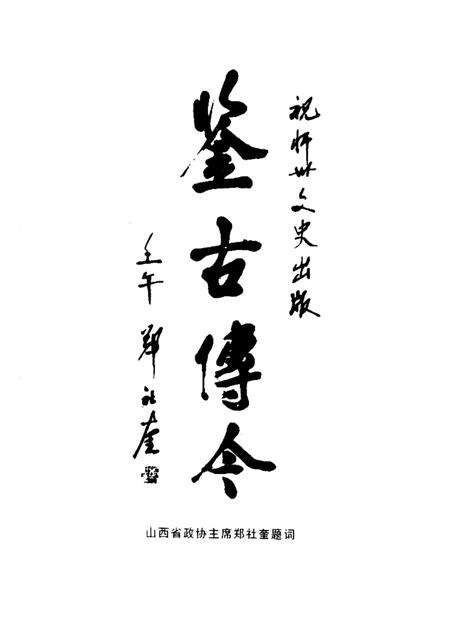 祝忻州文史出版
鉴古傳今
壬午 鄭社奎
山西省政协主席郑社奎题词